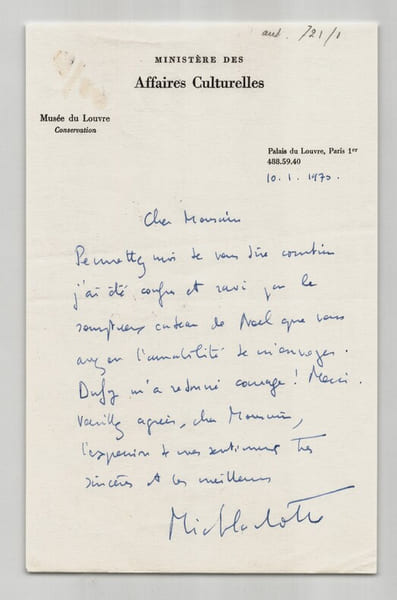 aut. 721/1
MINISTÈRE DES
Affaires Culturelles
Musée du Louvre
Conservation
Palais du Louvre, Paris 1er
488.59.40
10.1.1970.
Cher Monsieur
Permettez moi de vous dire combien
j'ai été confus et ravi par le
somptueux cadeau de Noël que vous
avez eu l'amabilité de m'envoyer.
Dufy m'a redonné courage ! Merci.
Veuillez agréer, cher Monsieur,
l'expression de mes sentiments très
sincères et les meilleurs